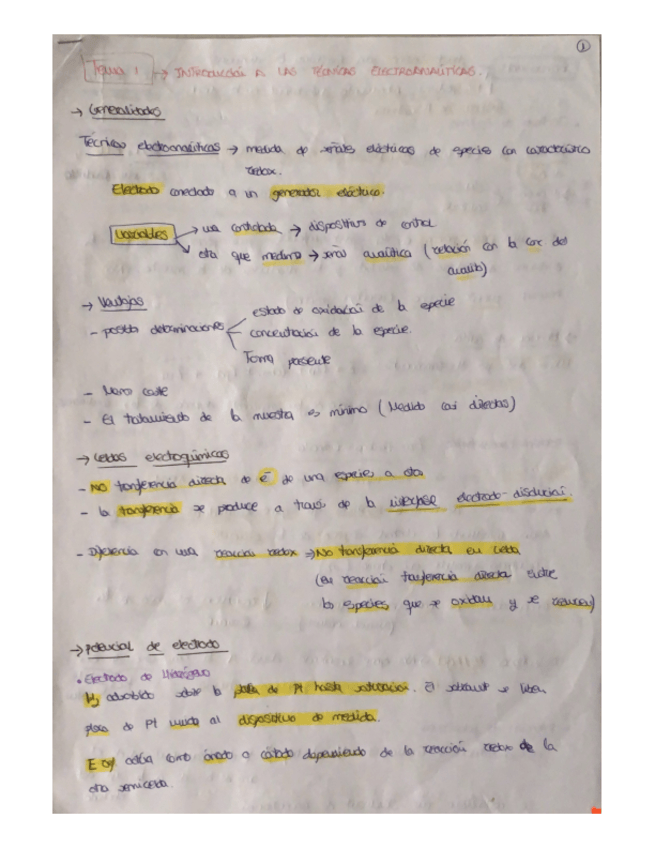 1
Tema 1 → INTRODUCCIÓN A LAS TÉCNICAS ELECTROANALÍTICAS.
→ Generalidades
Técnicas electroanalíticas → medida de señales eléctricas de especies con característica
redox.
Electrodo conectado a un generador eléctrico.
variables → una controlada → dispositivos de control
otra que medimos → señal analítica (relación con la conc del
analito)
→ Ventajas
- posible determinaciones estado de oxidación de la especie
concentración de la especie.
Forma presente
- Menor coste
- El tratamiento de la muestra es mínimo (Medida casi directas)
→ Celdas electroquímicas
- NO tranferencia directa de e⁻ de una especies a otra
- la tranferencia se produce a través de la interfase electrodo-disolución.
- Diferencia en una reacción redox → No transferencia directa en celda
(en reacción tranferencia directa entre
las especies que se oxidan y se reducen)
→ potencial de electrodo
• Electrodo de Hidrógeno
H₂ adsorbido sobre la placa de Pt hasta saturación. El sobrante se libera
placa de Pt unida al dispositivo de medida.
actúa como ánodo o cátodo dependiendo de la reacción redox de la
otra semicelda.